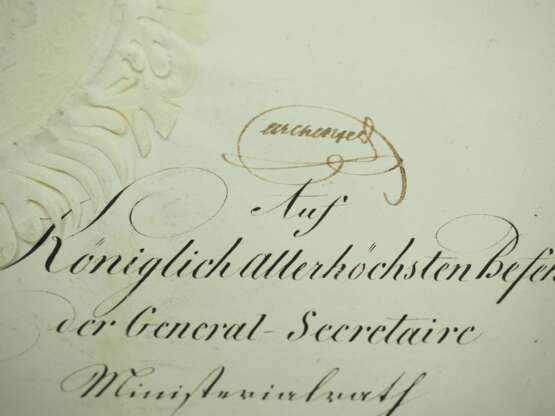 Auf
Königlich Allerhöchsten Befeh
der General-Secretaire
Ministerialrath